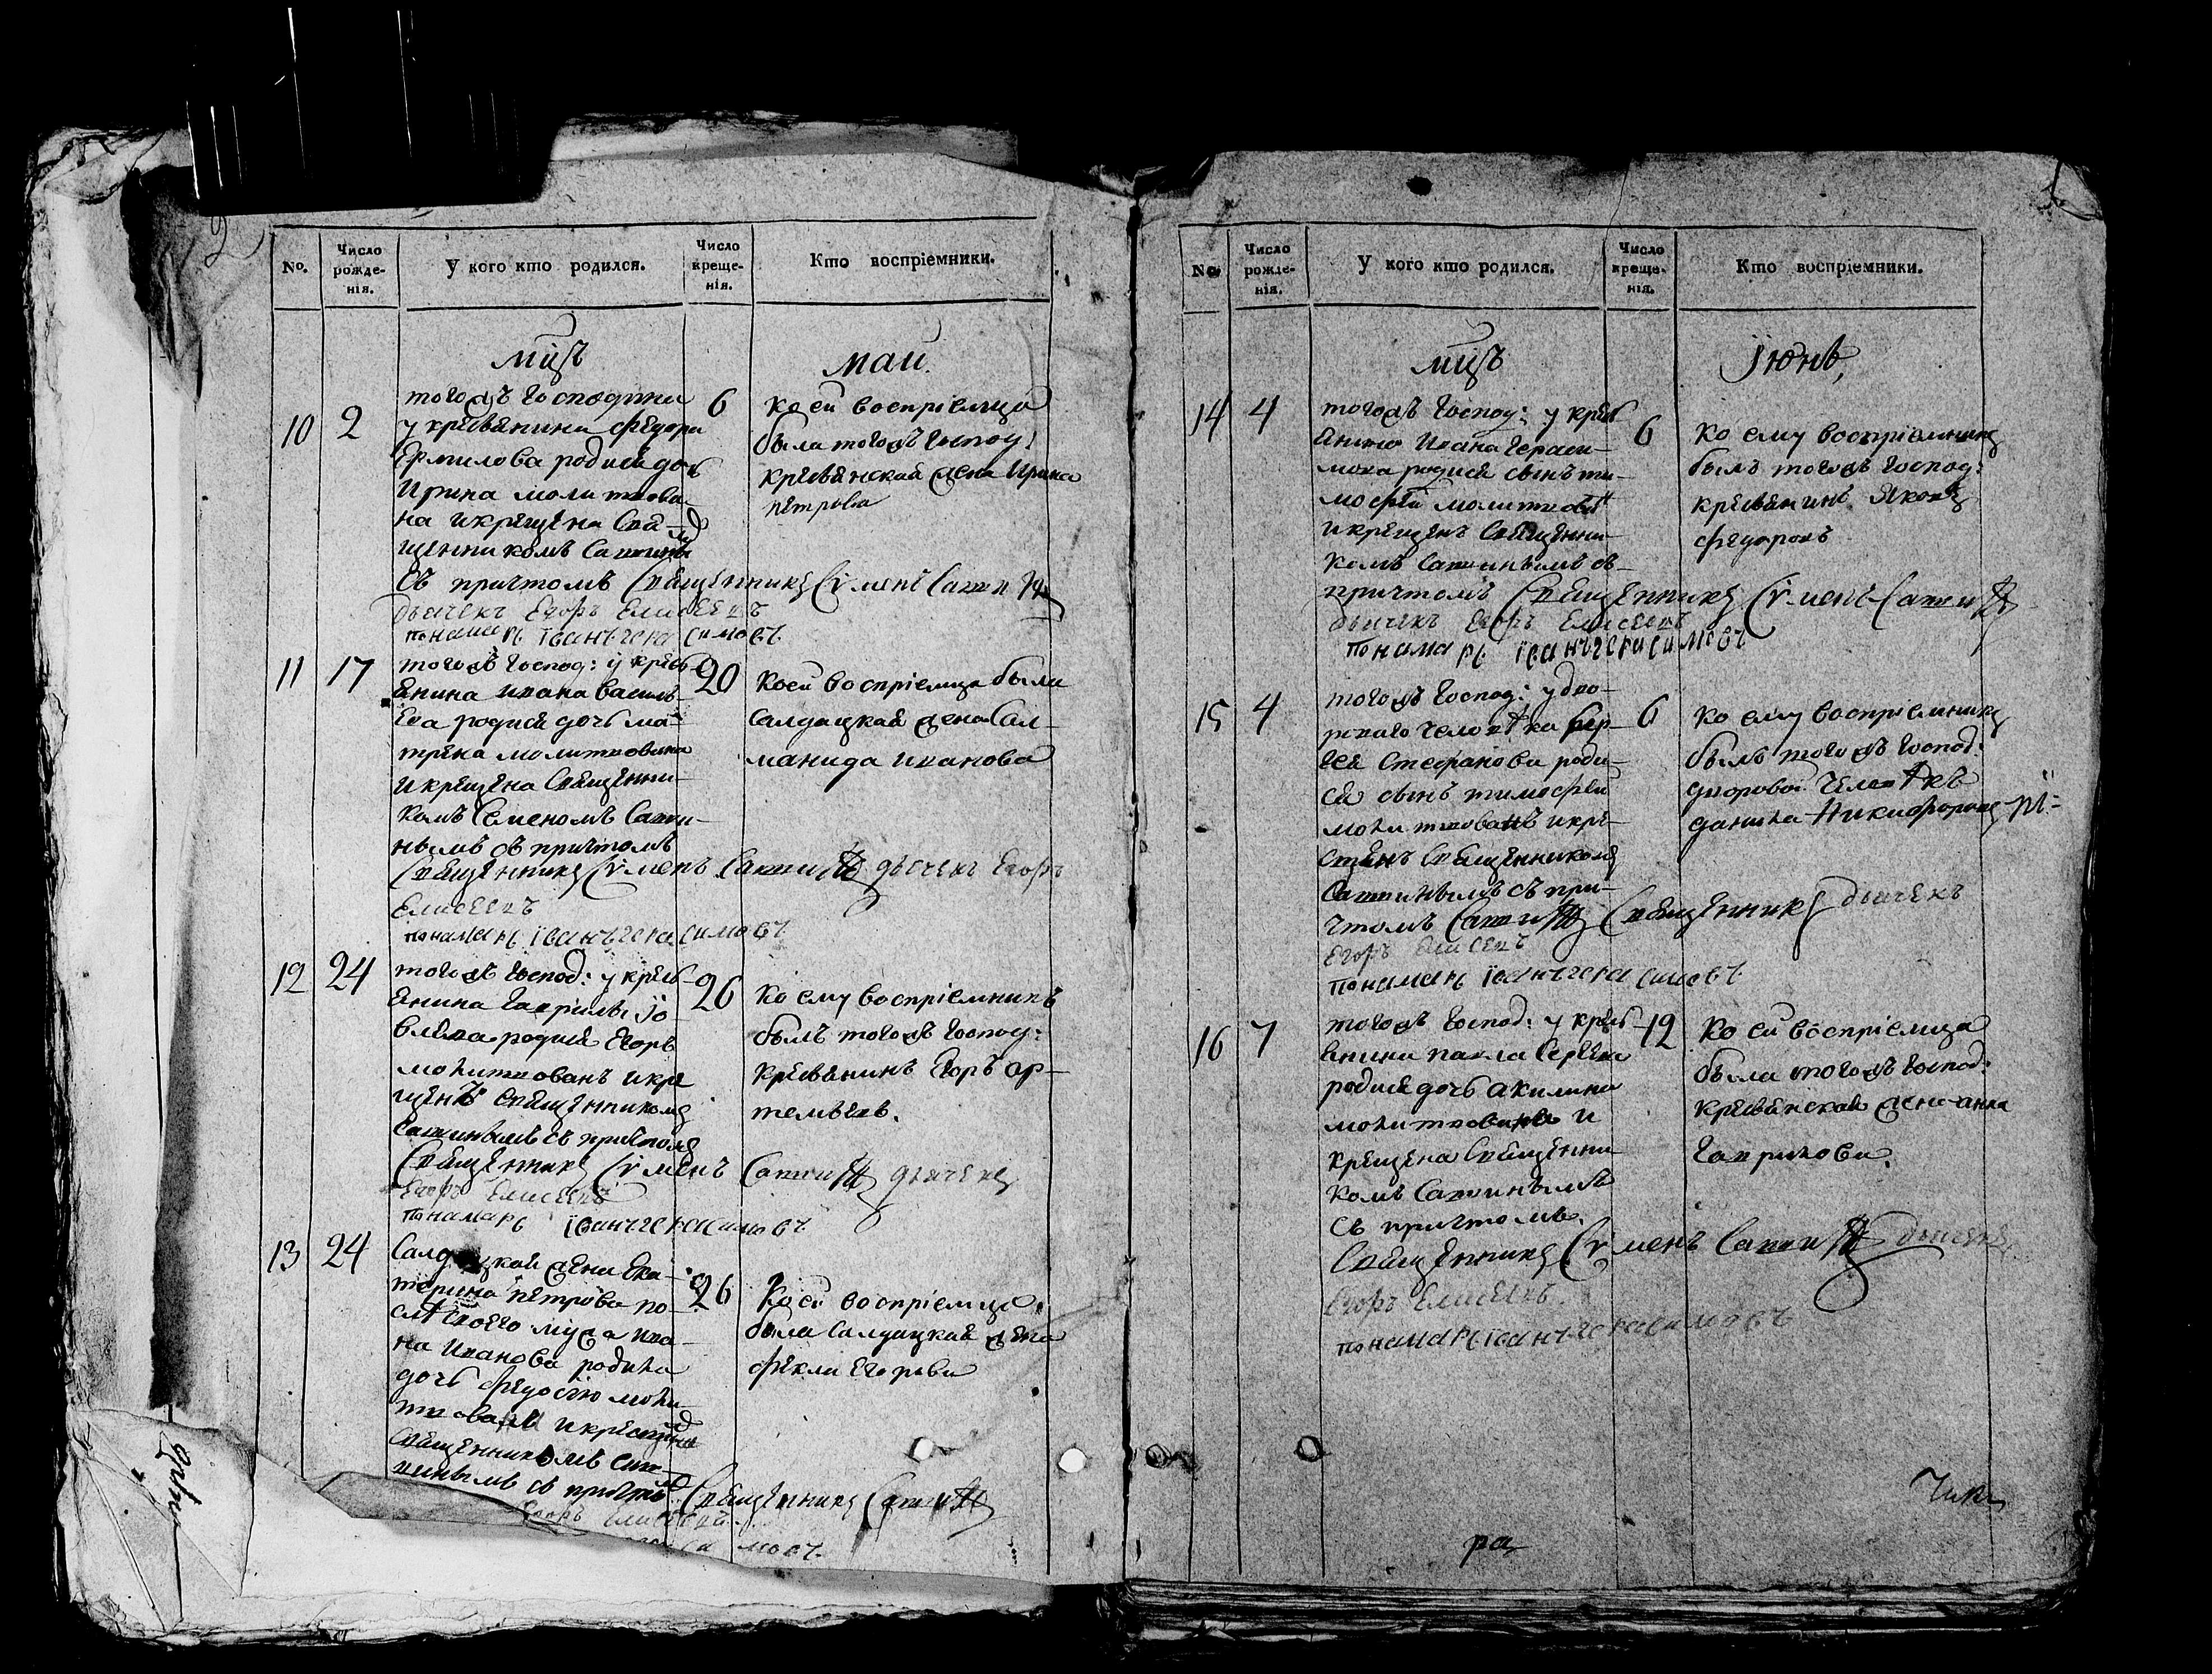 No.
Число рожде-нія.
У кого кто родился.
Число креще-нія.
Кто воспріемники.
мцъ
май.
10
2
тогожъ господина
у крестьянина Федора
Ермилова родися дочь
Ирина молитвова
на и крещена Свя-
щенникомъ Сатинымъ
съ причтомъ Священникъ Сѵменъ Сатинъ
дьячекъ Егоръ Елисеевъ
понамарь Іванъ Герасимовъ
6
ко ей воспріемница
была тогожъ господ:
крестьянская жена Ирина
петрова
11
17
тогожъ господ: у кресть-
янина ивана василь-
ева родися дочь ма-
трена молитвована
и крещена Священни-
комъ Семеномъ Сати-
нымъ съ причтомъ
Священникъ Сѵменъ Сатинъ дьячекъ Егоръ
Елисеевъ
понамарь Іванъ Герасимовъ
20
ко ей воспріемница была
Салдацкая жена Сал-
манида иванова
12
24
тогожъ господ: у кресть-
янина Гаврилы Іо-
влева родися Егоръ
молитвованъ и кре
щенъ священникомъ
сатинымъ съ причтомъ
Священникъ Сѵменъ Сатинъ дьячекъ
Егоръ Елисеевъ
понамарь Іванъ Герасимовъ
26
ко ему воспріемникъ
былъ тогожъ господ:
крестьянинъ Егоръ ар-
темьевъ.
13
24
жена Ека-
терина петрова по-
слѣ своего мужа ива-
на иванова родила
дочь Федосію моли-
Священникомъ Сат-
инымъ съ причтомъ Священникъ Сатинъ
Егоръ Елисеевъ
26
ко ей воспріемница
была Салдацкая жена
фекла Егорова
No.
Число рожде-нія.
У кого кто родился.
Число креще-нія.
Кто воспріемники.
мцъ
Іюнь,
14
4
тогожъ господ: у кресть
янина Ивана Гераси-
мова родися сынъ ти-
мофей молитвованъ
и крещенъ Священни-
комъ Сатинымъ съ
причтомъ Священникъ Сѵменъ Сатинъ
дьячекъ Егоръ Елисеевъ
понамарь Іванъ Герасимовъ
6
ко ему воспріемникъ
былъ тогожъ господ:
крестьянинъ Яковъ
федоровъ
15
4
тогожъ господ: у дво-
роваго человѣка Сер-
гея Стефанова роди-
ся сынъ тимофей
молитвованъ и кре-
щенъ Священникомъ
Сатинымъ съ при-
чтомъ Сатинъ Священникъ дьячекъ
Егоръ Елисеевъ
понамарь Іванъ Герасимовъ
6
ко ему воспріемникъ
былъ тогожъ господ:
дворовой человѣкъ
данила Никифоровъ
16
7
тогожъ господ: у кресть
янина павла Сергеева
родися дочь акилина
молитвована и
крещена Священни-
комъ Сатинымъ
съ причтомъ.
Священникъ Сѵменъ Сатинъ дьячекъ
Егоръ Елисеевъ.
понамарь Іванъ Герасимовъ
12
ко ей воспріемница
была тогожъ господ:
крестьянская жена анна
Гаврилова.